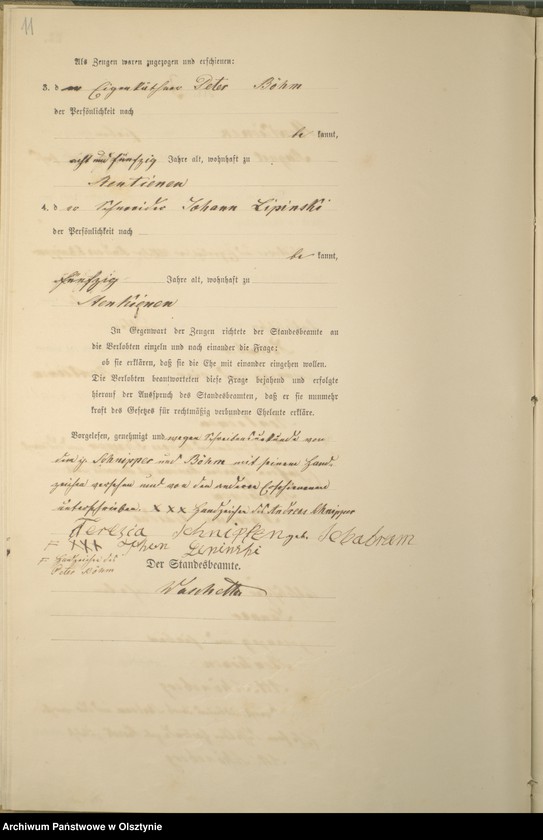 11
Als Zeugen waren zugezogen und erschienen:
3. d er Eigenkäthner Peter Böhm
der Persönlichkeit nach
be kannt,
acht und fünfzig Jahre alt, wohnhaft zu
4. d er Schneider Johann Lipinski
der Persönlichkeit nach
be kannt,
fünfzig Jahre alt, wohnhaft zu
In Gegenwart der Zeugen richtete der Standesbeamte an
die Verlobten einzeln und nach einander die Frage:
ob sie erklären, daß sie die Ehe mit einander eingehen wollen.
Die Verlobten beantworteten diese Frage bejahend und erfolgte
hierauf der Ausspruch des Standesbeamten, daß er sie nunmehr
kraft des Gesetzes für rechtmäßig verbundene Eheleute erkläre.
Vorgelesen, genehmigt und wegen Schreibensunkunde von
den p. Schnipper und Böhm mit seinem Hand-
zeichen versehen und von den anderen Erschienenen
unterschrieben. X X X Handzeichen des Andreas Schnipper
Teresia geb.
F XXX Lipinski
F Handzeichen des
Peter Böhm
Der Standesbeamte.
Archiwum Państwowe w Olsztynie